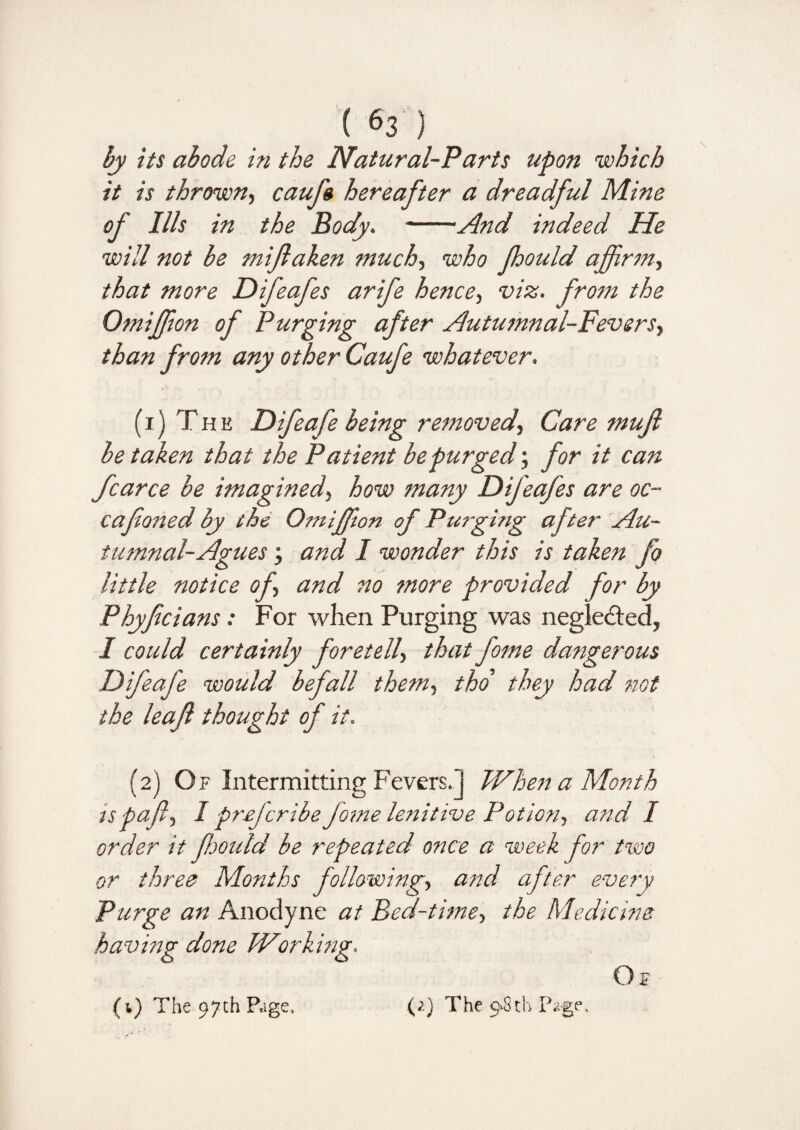 ( 63 )
by its abode in the Natural-Parts upon which
it is thrown, cauſe hereafter a dreadful Mine
of Ills in the Body. ——And indeed He
will not be miſtaken much, who ſhould affirm,
that more Diſeaſes ariſe hence, viz. from the
Omiſſion of Purging after Autumnal-Fevers,
than from any other Cauſe whatever.
(1) The Diſeaſe being removed, Care muſt
be taken that the Patient be purged; for it can
ſcarce be imagined, how many Diſeaſes are oc-
caſioned by the Omiſſion of Purging after Au-
tumnal-Agues; and I wonder this is taken ſo
little notice of, and no more provided for by
Phyſicians: For when Purging was neglected,
I could certainly foretell, that ſome dangerous
Diſeaſe would befall them, tho' they had not
the leaſt thought of it.
(2) Of Intermitting Fevers.] When a Month
is paſt, I preſcribe ſome lenitive Potion, and I
order it ſhould be repeated once a week for two
or three Months following, and after every
Purge an Anodyne at Bed-time, the Medicine
having done Working.
Of
(1) The 97th Page. (2) The 98th Page.